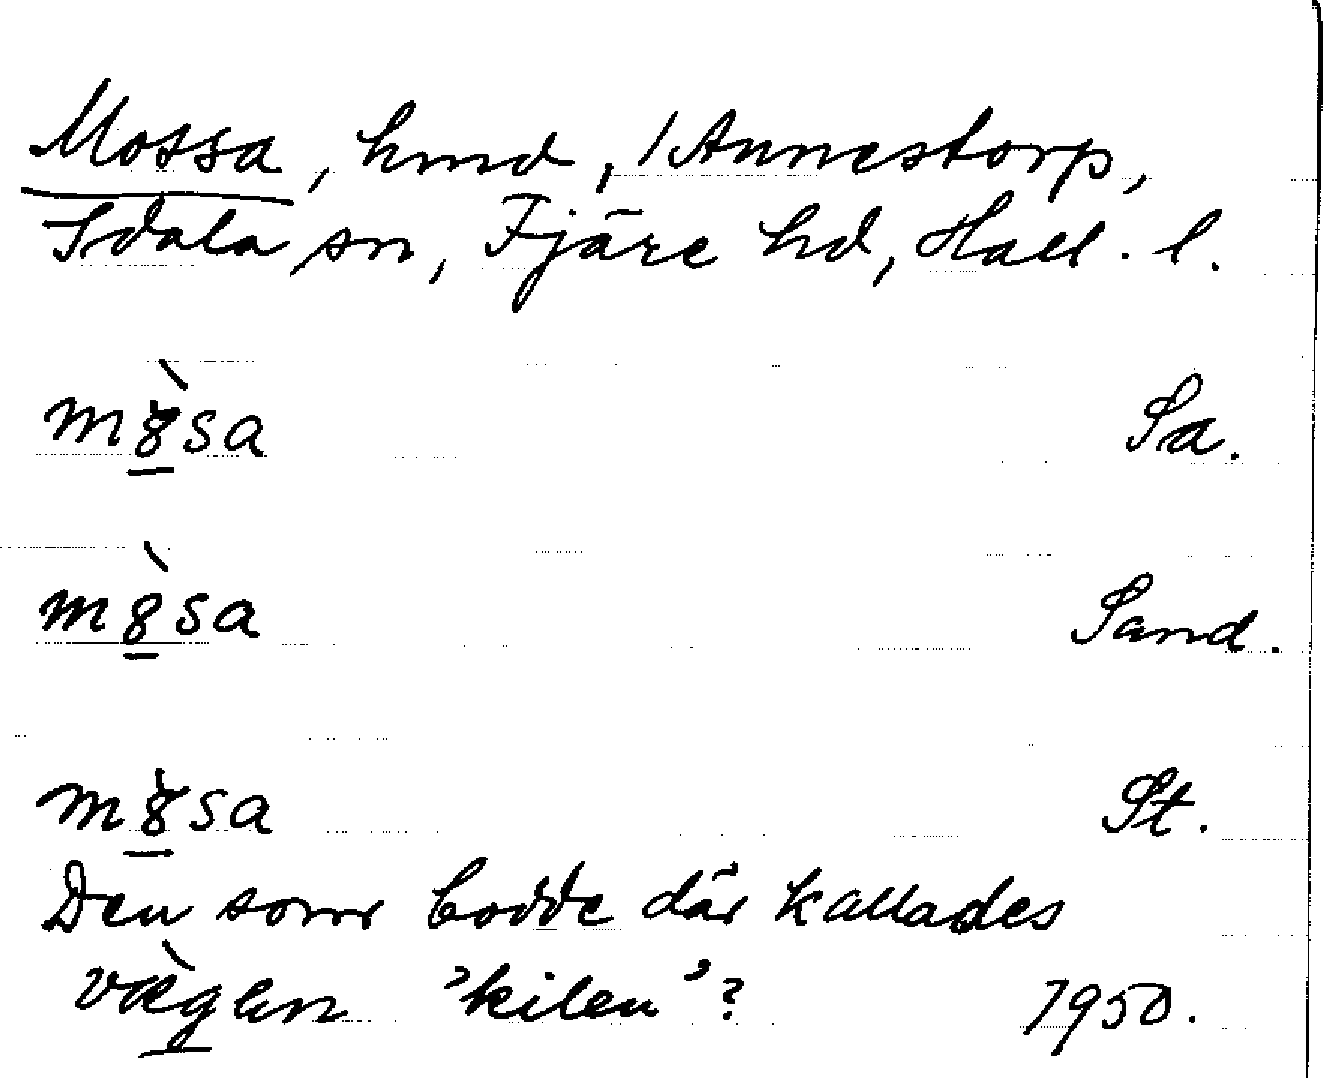 Mossa, hmd, /Annestorp,
Idala sn, Fjäre hd, Hall. l.
m8̠̀sa Sa.
m8̠̀sa Sand.
m8̠̀sa St.
Den som bodde där kallades
'kilen'? 1950.